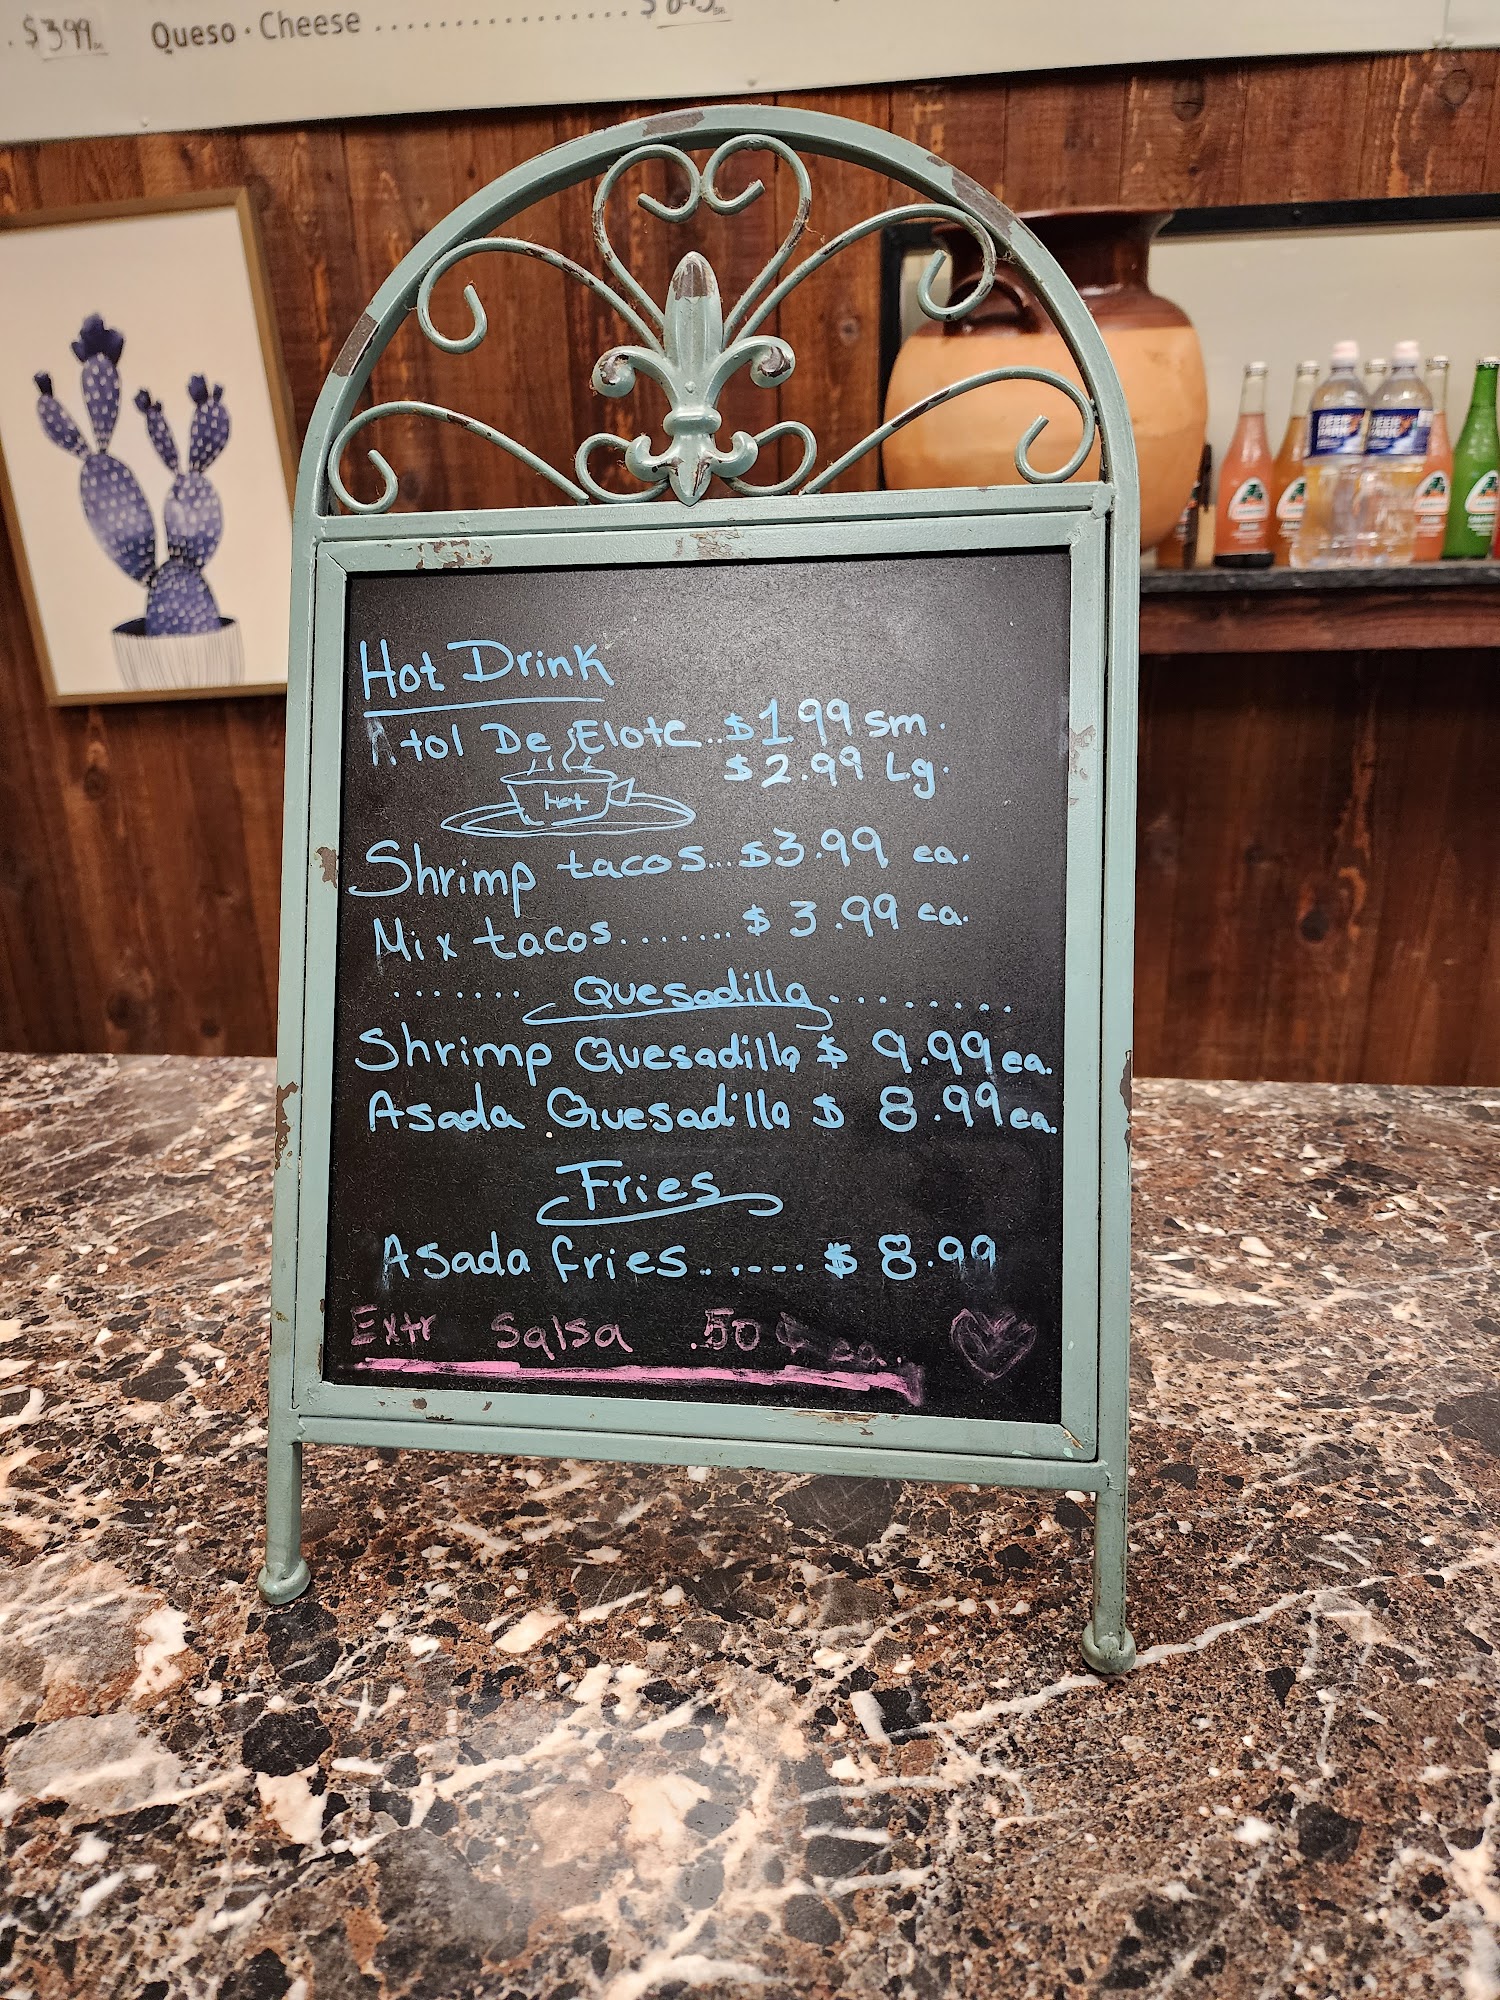 $3.99 Queso · Cheese ................
Hot Drink
Atol De Elote..$1.99 sm.
$2.99 Lg.
Hot
Shrimp tacos...$3.99 ea.
Mix tacos.......$3.99 ea.
....... Quesadilla .........
Shrimp Quesadilla $ 9.99 ea.
Asada Quesadilla $ 8.99 ea.
Fries
Asada fries.......$ 8.99
Extr Salsa .50 ¢ ea..
DEER PARK DEER PARK